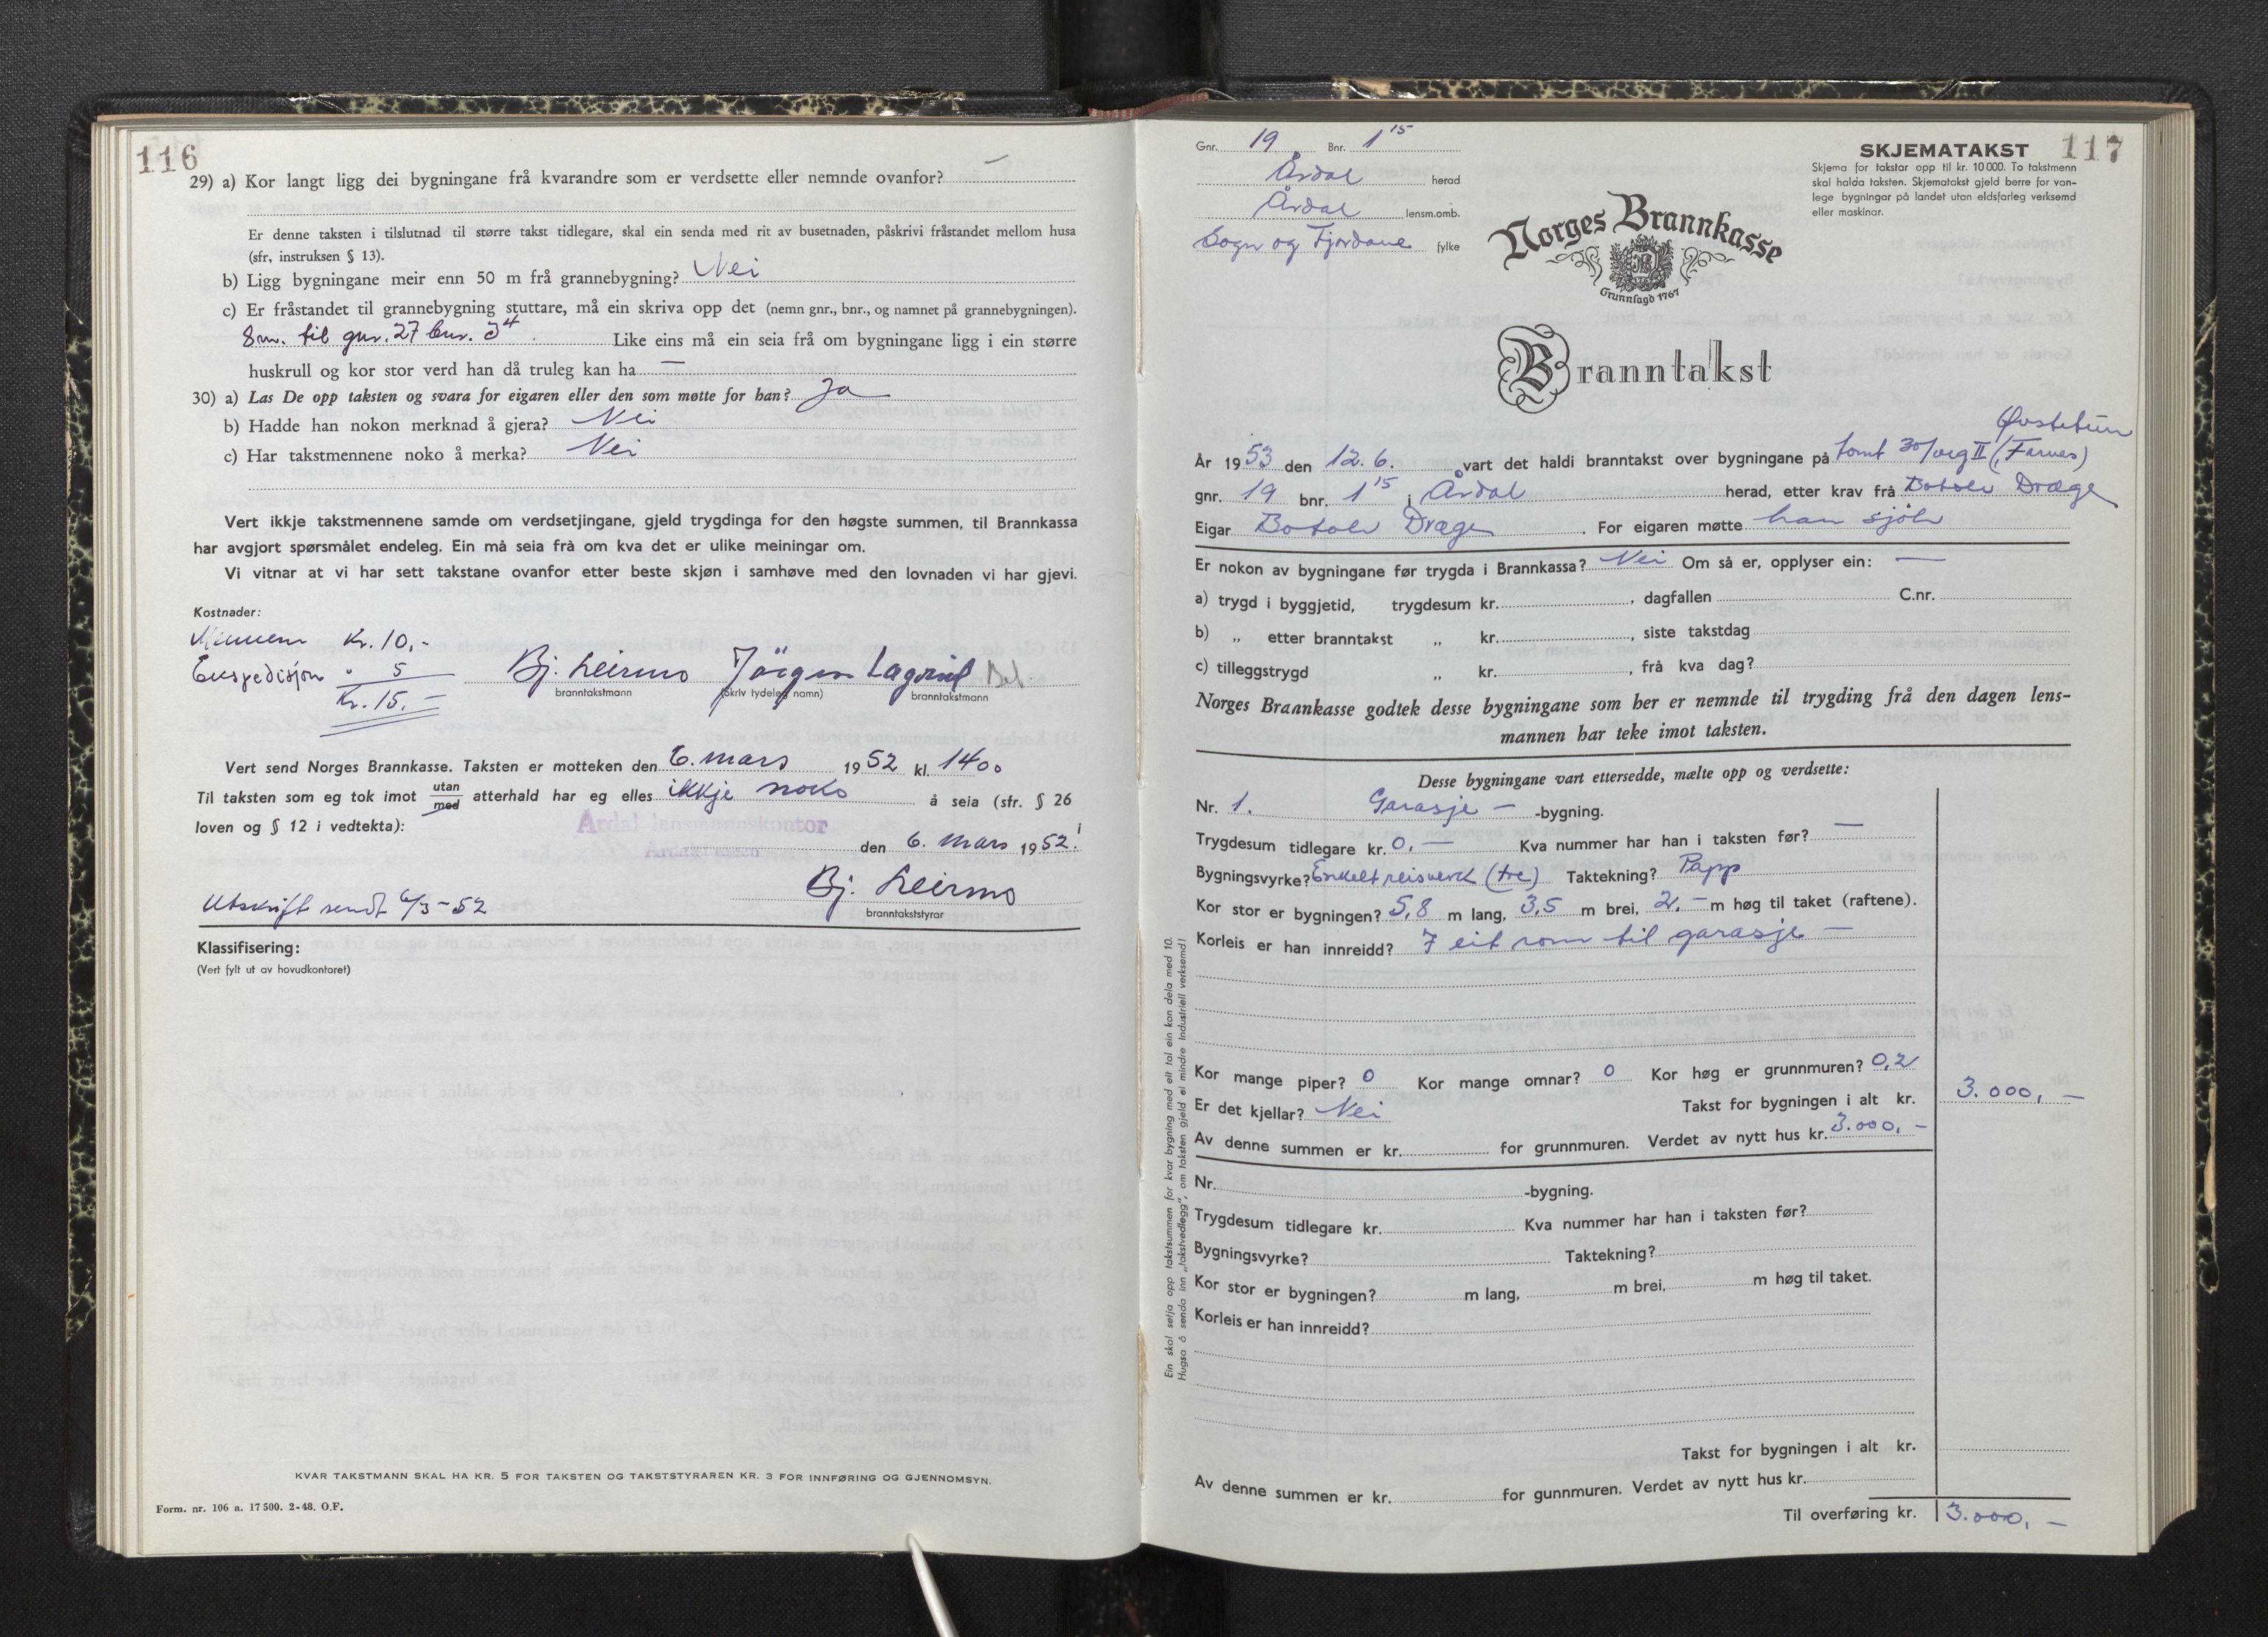 116
29) a) Kor langt ligg dei bygningane frå kvarandre som er verdsette eller nemnde ovanfor? —
Er denne taksten i tilslutnad til større takst tidlegare, skal ein senda med rit av busetnaden, påskrivi fråstandet mellom husa
(sfr, instruksen § 13).
b) Ligg bygningane meir enn 50 m frå grannebygning? Nei
c) Er fråstandet til grannebygning stuttare, må ein skriva opp det (nemn gnr., bnr., og namnet på grannebygningen).
8 m. til gnr. 27 bnr. 3⁴. Like eins må ein seia frå om bygningane ligg i ein større
huskrull og kor stor verd han då truleg kan ha —
30) a) Las De opp taksten og svara for eigaren eller den som møtte for han? Ja
b) Hadde han nokon merknad å gjera? Nei
c) Har takstmennene noko å merka? Nei
Vert ikkje takstmennene samde om verdsetjingane, gjeld trygdinga for den høgste summen, til Brannkassa
har avgjort spørsmålet endeleg. Ein må seia frà om kva det er ulike meiningar om.
Vi vitnar at vi har sett takstane ovanfor etter beste skjøn i samhøve med den lovnaden vi har gjevi.
Kostnader:
Kr. 10,-
Ekspedisjon " 5
Kr. 15. —
Bj. Leirmo Jörgen Lægreid
branntakstmann (Skriv tydeleg namn) branntakstmann
Vert send Norges Brannkasse. Taksten er motteken den 6. mars 1952 kl. 14⁰⁰
Til taksten som eg tok imot utan/med atterhald har eg elles ikkje noko å seia (sfr. § 26 i
loven og § 12 i vedtekta):
Årdal lensmannskontor
den 6. mars 1952.
Bj. Leirmo
branntakststyrar
Utskrift sendt 6/3-52
Klassifisering:
(Vert fylt ut av hovudkontoret)
KVAR TAKSTMANN SKAL HA KR. 5 FOR TAKSTEN OG TAKSTSTYRAREN KR. 3 FOR INNFØRING OG GJENNOMSYN.
Form. nr. 106 a. 17 500. 2-48. O.F.
117
Gnr. 19 Bnr. 1¹⁵
Årdal herad
Årdal lensm.omb.
Sogn og Fjordane fylke
SKJEMATAKST
Skjema for takstar opp til kr. 10 000. To takstmenn
skal halda taksten. Skjematakst gjeld berre for van-
lege bygningar på landet utan eldsfarleg verksemd
eller maskinar.
Norges Brannkasse
Grunnlagd 1767
Branntakst
Øvstetun
År 1953 den 12. 6. vart det haldi branntakst over bygningane på tomt 30/veg II (Farnes)
gnr. 19 bnr. 1¹⁵ i Årdal herad, etter krav frå Botolv Dræge
Eigar Botolv Dræge. For eigaren møtte han sjølv
Er nokon av bygningane før trygda i Brannkassa? Nei Om så er, opplyser ein: —
a) trygd i byggjetid, trygdesum kr. , dagfallen C.nr.
b) „ etter branntakst „ kr. , siste takstdag
c) tilleggstrygd „ kr. , frå kva dag?
Norges Brannkasse godtek desse bygningane som her er nemnde til trygding frå den dagen lens-
mannen har teke imot taksten.
Desse bygningane vart ettersedde, mælte opp og verdsette:
Nr. 1. Garasje — -bygning.
Trygdesum tidlegare kr. 0, — Kva nummer har han i taksten før? —
Bygningsvyrke? Enkelt reisverk (tre) Taktekning? Papp
Kor stor er bygningen? 5,8 m lang, 3,5 m brei, 2,- m høg til taket (raftene).
Korleis er han innreidd? I eit rom til garasje —
Kor mange piper? 0 Kor mange omnar? 0 Kor høg er grunnmuren? 0,2
Er det kjellar? Nei Takst for bygningen i alt kr. 3.000, —
Av denne summen er kr. for grunnmuren. Verdet av nytt hus kr. 3.000, -
Nr. -bygning.
Trygdesum tidlegare kr. Kva nummer har han i taksten før?
Bygningsvyrke? Taktekning?
Kor stor er bygningen? m lang, m brei, m høg til taket.
Korleis er han innreidd?
Takst for bygningen i alt kr.
Av denne summen er kr. for gunnmuren. Verdet av nytt hus kr.
Til overføring kr. 3.000, —
Ein skal setja opp takstsummen for kvar bygning med eit tal ein kon dela med 10.
Hugsa å senda inn „takstvedlegg”, om taksten gjeld ei mindre Industriell verksemd!